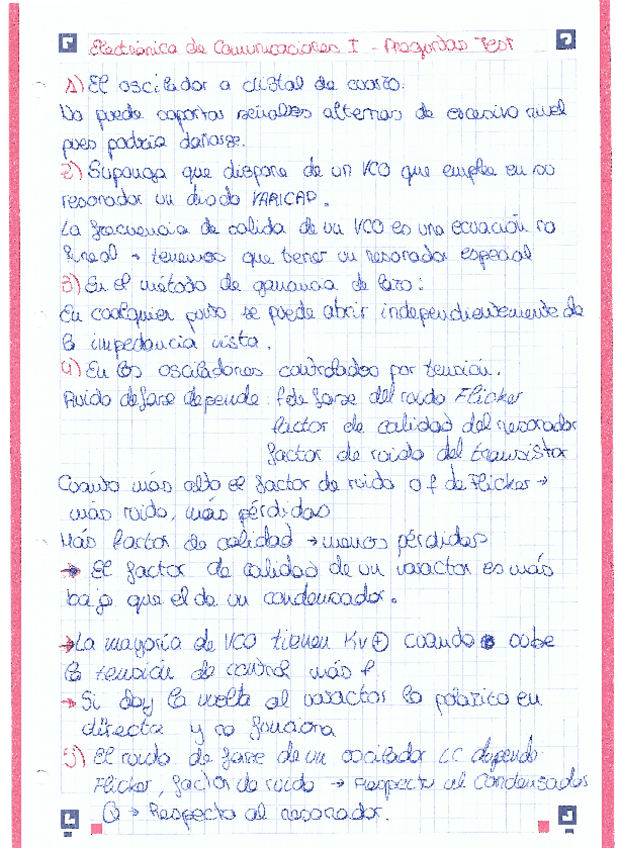 Electrónica de Comunicaciones I - Preguntas Test
1) El oscilador a cristal de cuarzo:
No puede soportar señales alternas de excesivo nivel
pues podría dañarse.
2) Suponga que dispone de un VCO que emplea en su
resonador un diodo VARICAP.
La frecuencia de salida de un VCO es una ecuación no
lineal → tenemos que tener un resonador especial
3) En el método de ganancia de lazo:
En cualquier punto se puede abrir independientemente de
la impedancia vista.
4) En los osciladores controlados por tensión.
Ruido de fase depende: f de fase del ruido Flicker
factor de calidad del resonador
factor de ruido del transistor
Cuanto más alto el factor de ruido o f de Flicker →
más ruido, más pérdidas
Más factor de calidad → menos pérdidas
→ El factor de calidad de un varactor es más
bajo que el de un condensador.
→ La mayoría de VCO tienen Kv⊕ cuando sube
la tensión de control más f
→ Si doy la vuelta al varactor lo polarizo en
directa y no funciona
5) El ruido de fase de un oscilador LC depende
Flicker, factor de ruido → Respecto al Condensador
Q → Respecto al resonador.